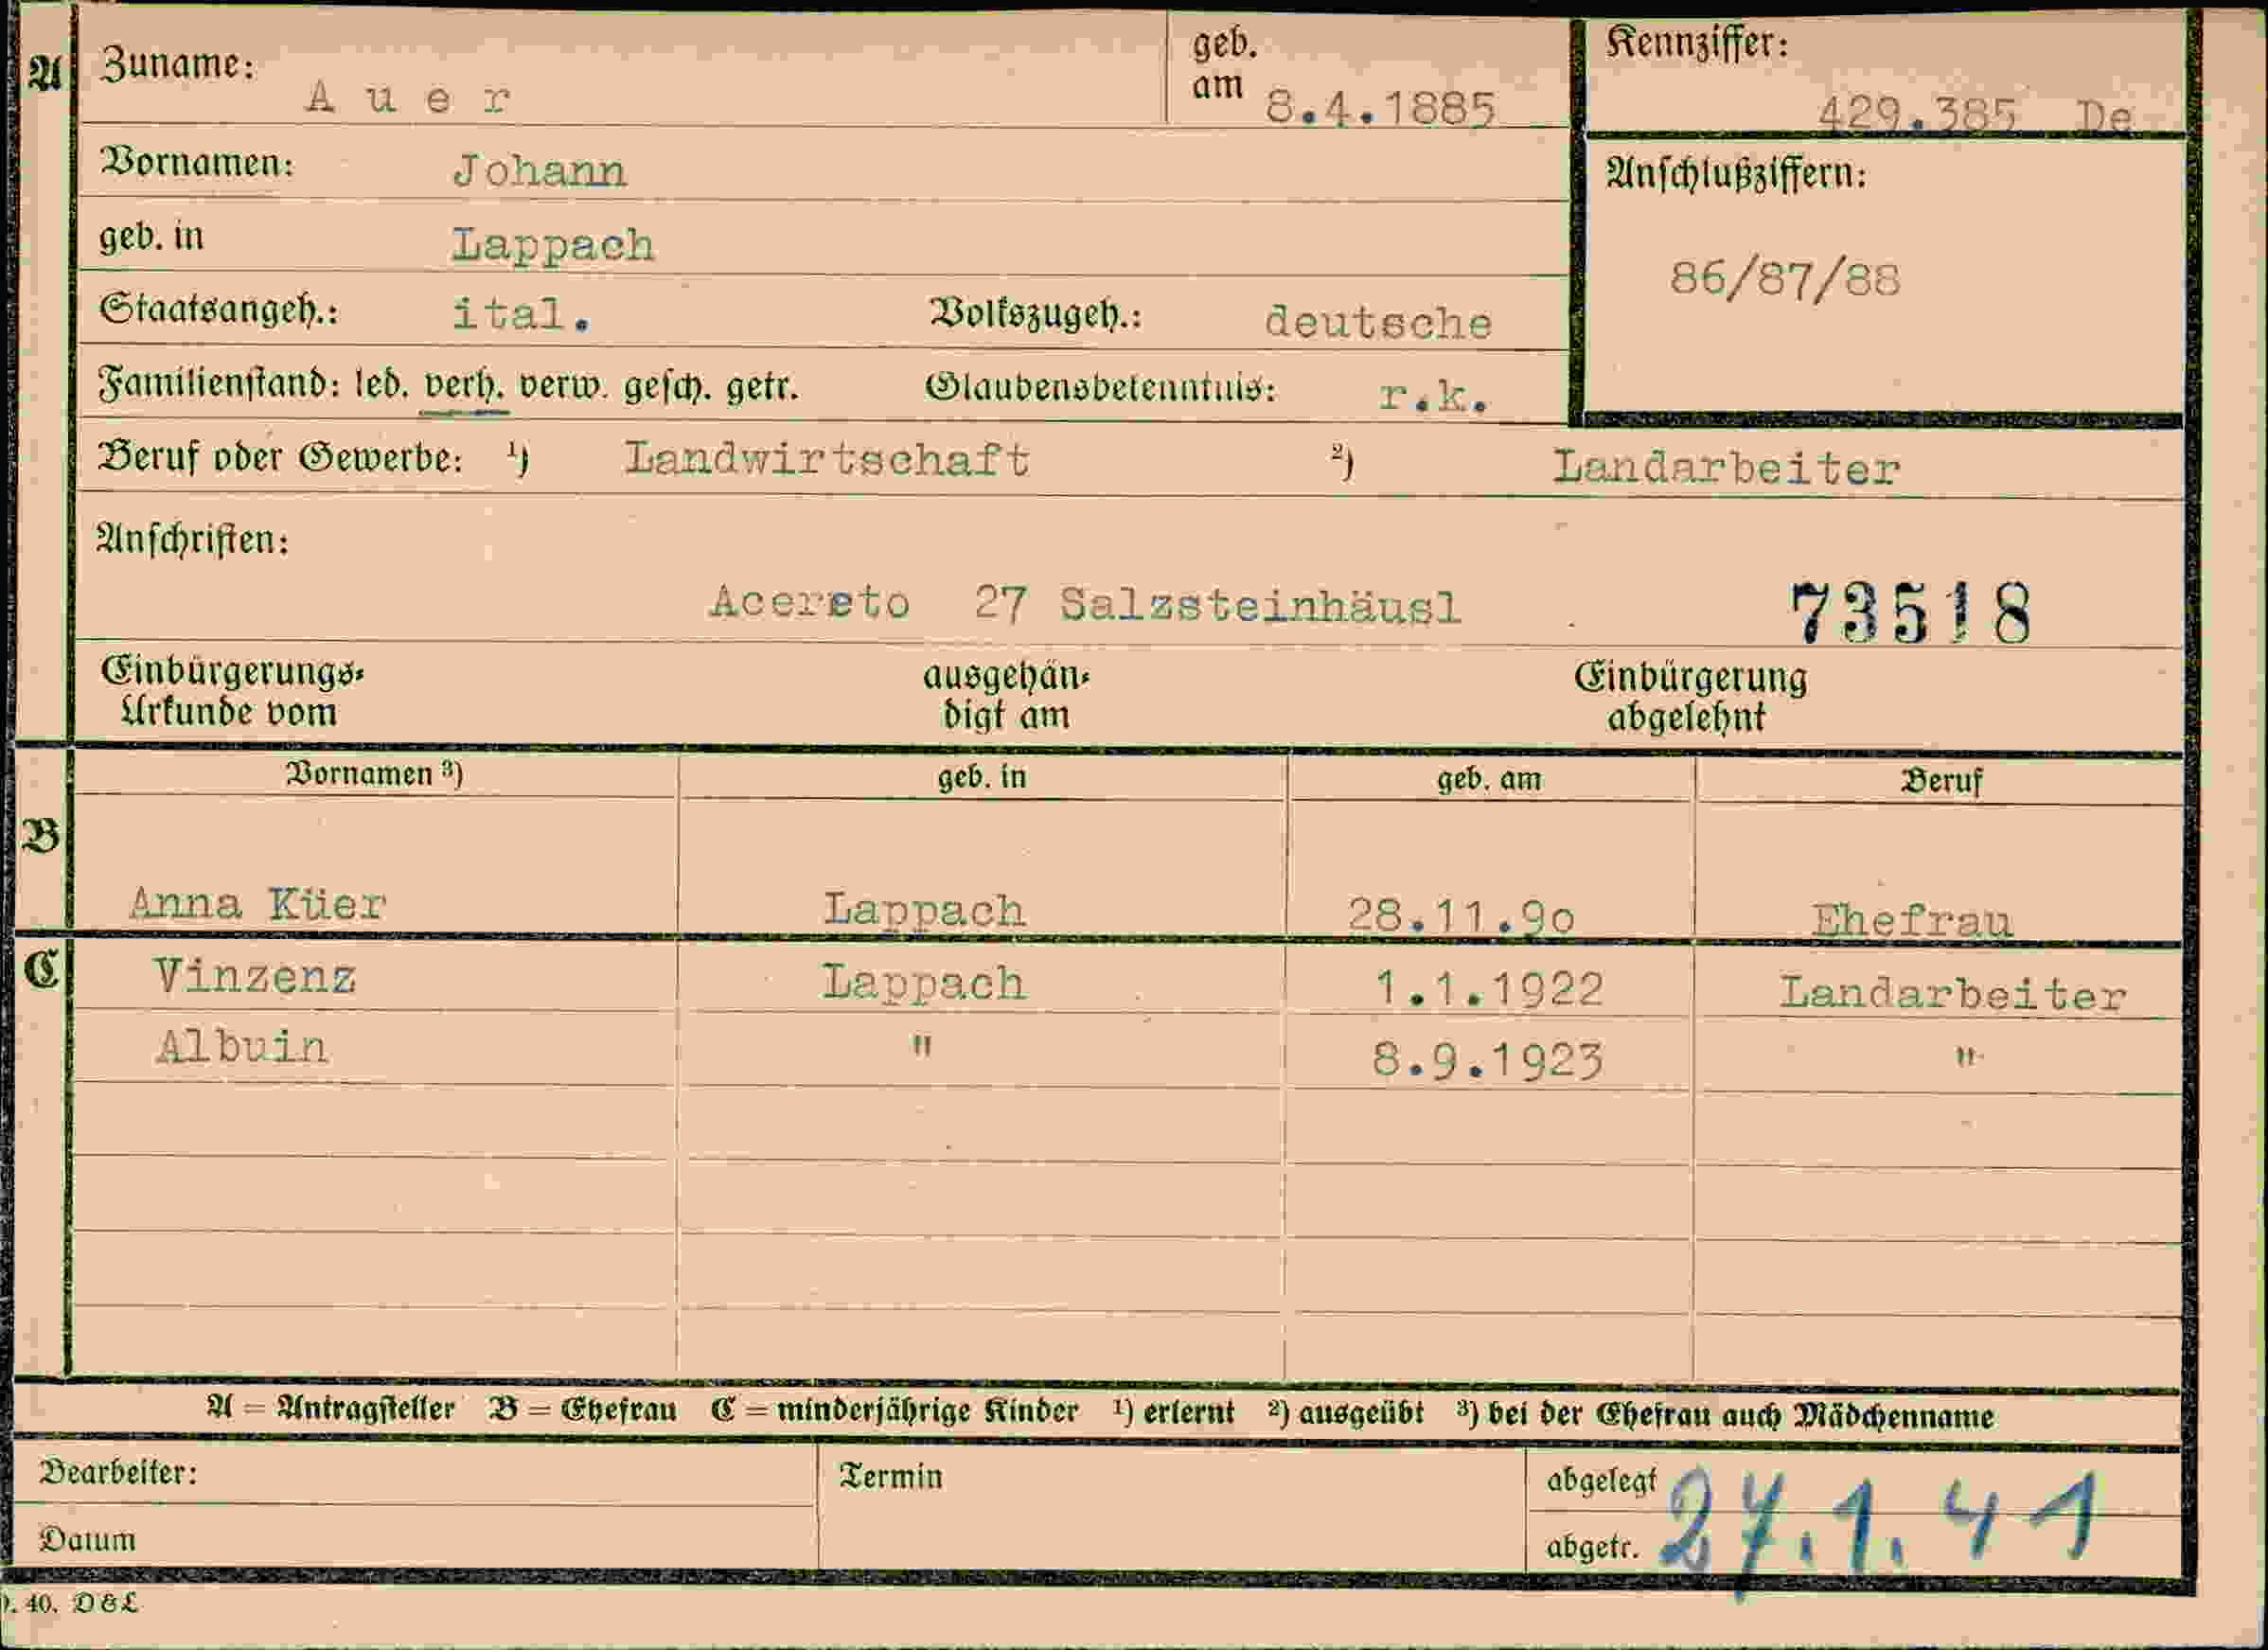 A Zuname: Auer geb. am 8.4.1885 Kennziffer: 429.385 De
Vornamen: Johann Anschlußziffern:
geb. in Lappach 86/87/88
Staatsangeh.: ital. Volkszugeh.: deutsche
Familienstand: led. verh. verw. gesch. getr. Glaubensbekenntnis: r.k.
Beruf oder Gewerbe: ¹) Landwirtschaft ²) Landarbeiter
Anschriften:
Acereto 27 Salzsteinhäusl 73518
Einbürgerungs- ausgehän- Einbürgerung
Urkunde vom digt am abgelehnt
Vornamen ³) geb. in geb. am Beruf
B
Anna Küer Lappach 28.11.9o Ehefrau
C Vinzenz Lappach 1.1.1922 Landarbeiter
Albuin " 8.9.1923 "
A = Antragsteller B = Ehefrau C = minderjährige Kinder ¹) erlernt ²) ausgeübt ³) bei der Ehefrau auch Mädchenname
Bearbeiter: Termin abgelegt 27.1.41
Datum abgetr.
40. D&L